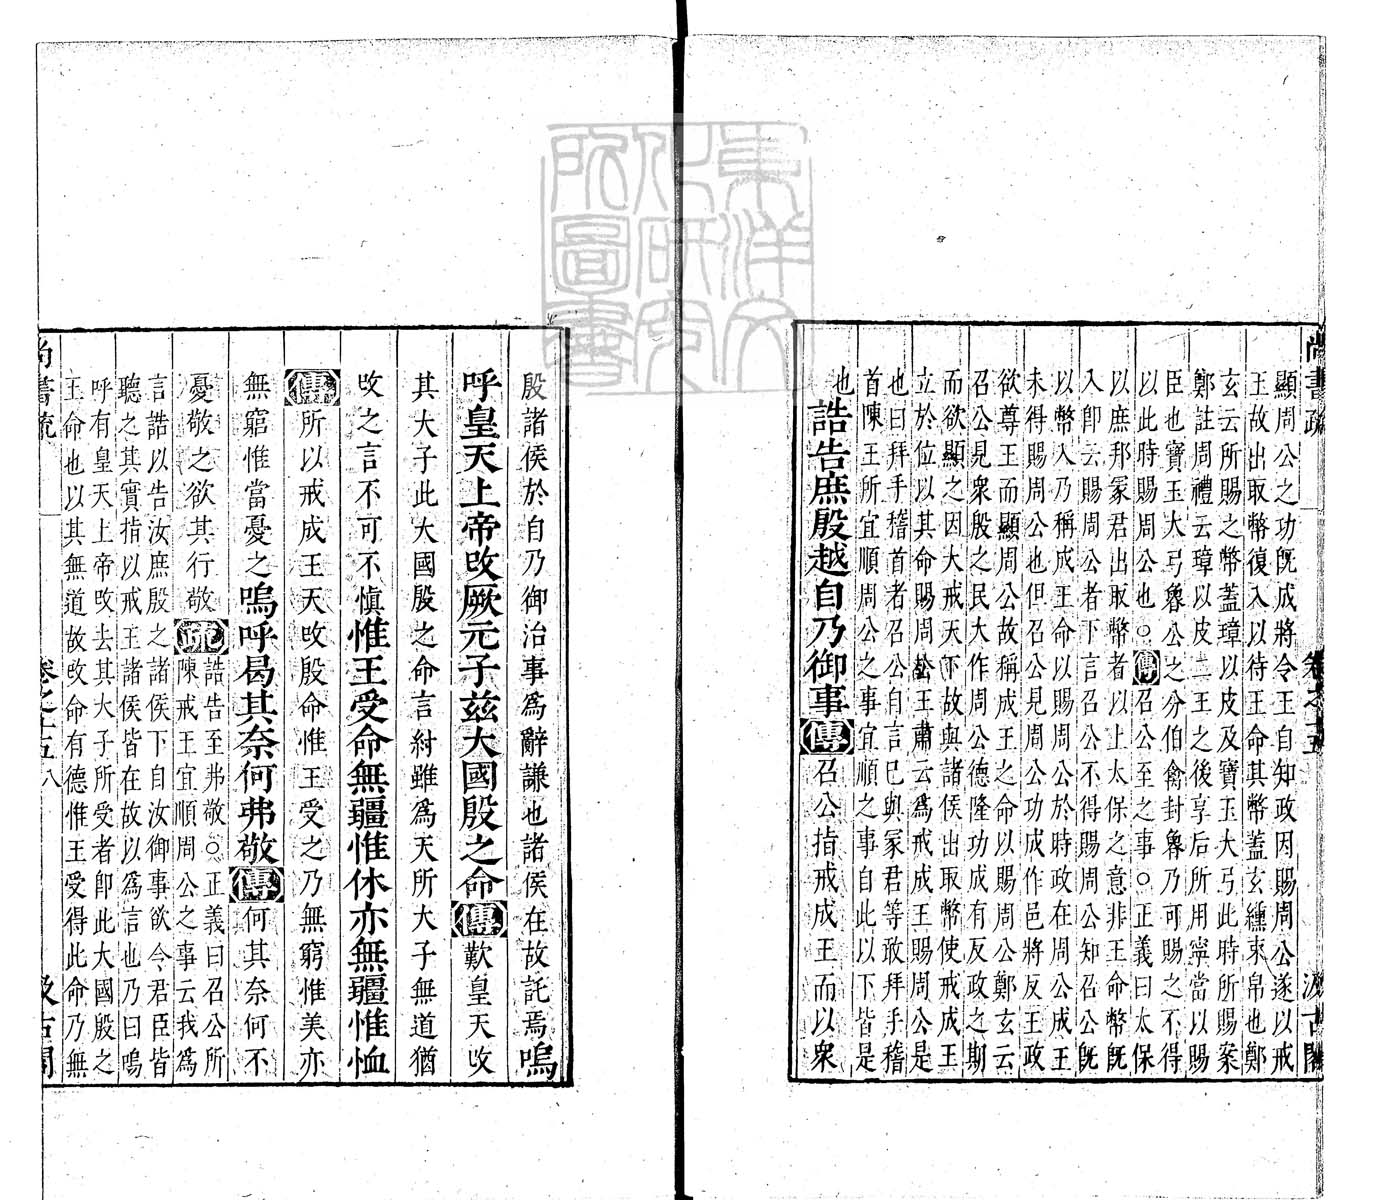 尚書疏 卷之十五 汲古閣
顯周公之功既成將令王自知政因賜周公遂以戒
王故出取幣復入以待王命其幣蓋玄纁束帛也鄭
玄云所賜之幣蓋璋以皮及寶玉大弓此時所賜案
鄭註周禮云璋以皮二王之後享后所用寧當以賜
臣也寶玉大弓魯公之分伯禽封魯乃可賜之不得
以此時賜周公也○傳召公至之事○正義曰太保
以庶邦冢君出取幣者以上太保之意非王命幣既
入卽云賜周公者下言召公不得賜周公知召公既
以幣入乃稱成王命以賜周公於時政在周公成王
未得賜周公也但召公見周公功成作邑將反王政
欲尊王而顯周公故稱成王之命以賜周公鄭玄云
召公見衆殷之民大作周公德隆功成有反政之期
而欲顯之因大戒天下故與諸侯出取幣使戒成王
立於位以其命賜周公王肅云爲戒成王賜周公是
也曰拜手稽首者召公自言己與冢君等敢拜手稽
首陳王所宜順周公之事宜順之事自此以下皆是
也誥告庶殷越自乃御事傳召公指戒成王而以衆
殷諸侯於自乃御治事爲辭謙也諸侯在故託焉嗚
呼皇天上帝改厥元子茲大國殷之命傳歎皇天改
其大子此大國殷之命言紂雖爲天所大子無道猶
改之言不可不愼惟王受命無疆惟休亦無疆惟恤
傳所以戒成王天改殷命惟王受之乃無窮惟美亦
無窮惟當憂之嗚呼曷其奈何弗敬傳何其奈何不
憂敬之欲其行敬疏誥告至弗敬○正義曰召公所
陳戒王宜順周公之事云我爲
言誥以告汝庶殷之諸侯下自汝御事欲令君臣皆
聽之其實指以戒王諸侯皆在故以爲言也乃曰嗚
呼有皇天上帝改去其大子所受者卽此大國殷之
王命也以其無道故改命有德惟王受得此命乃無
尚書疏 卷之十五 八 汲古閣